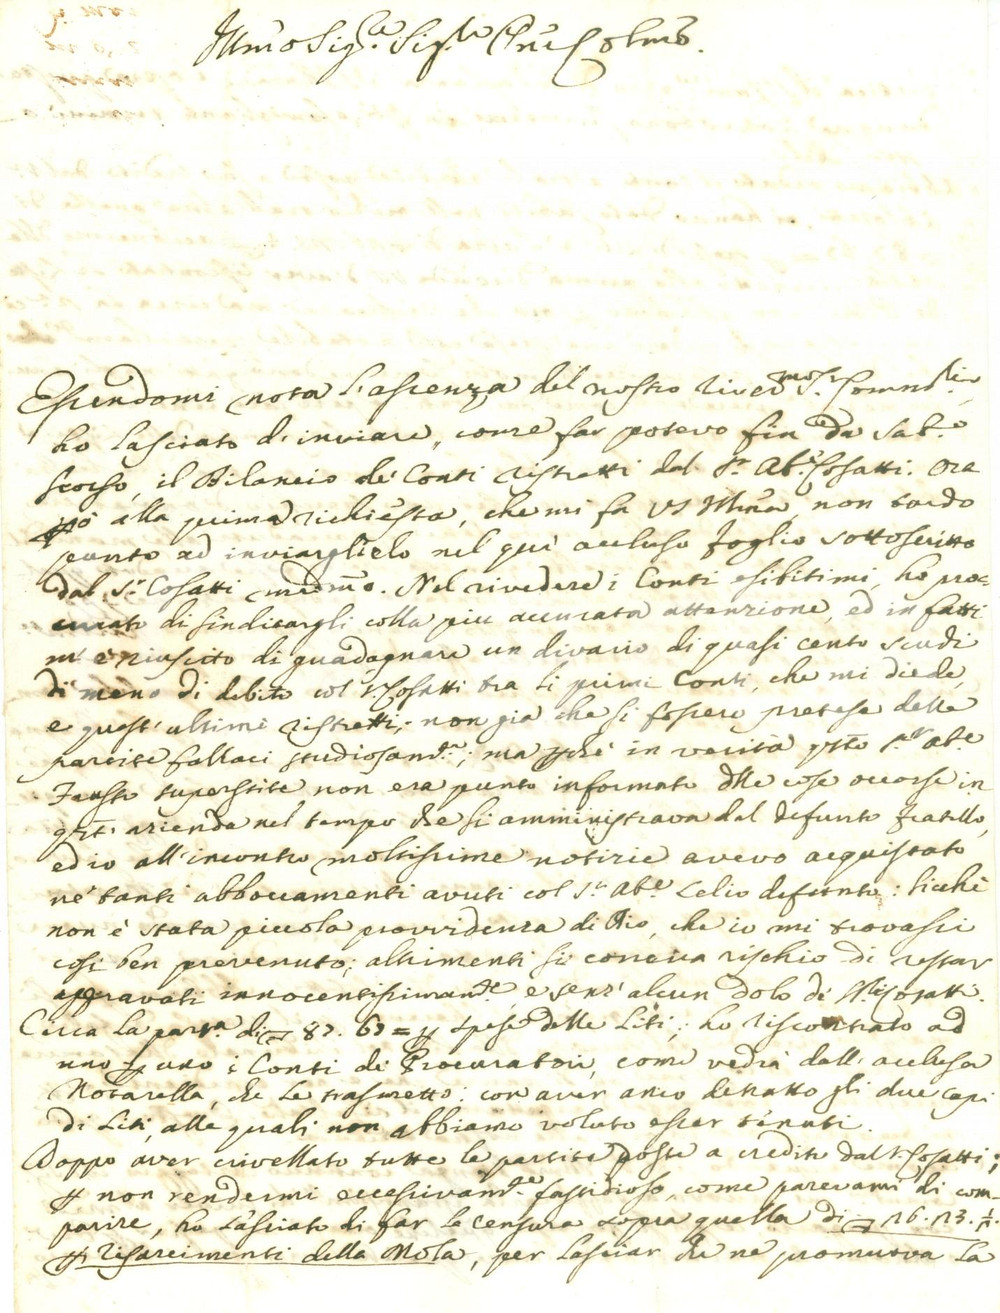 Illmo Sig.re Sig.re Prne Colmo.
Essendomi nota l'assenza del nostro river.mo Sr. Comm.rio,
ho lasciato d'inviare, come far potevo fin da Sab.o
scorso, il Bilancio de' Conti ristretti dal Sr. Ab.e Cosatti. Ora
pò alla prima richiesta, che mi fa VS Illma, non tardo
punto ad inviarglielo nel quì accluso foglio sottoscritto
dal Sr. Cosatti medmo. Nel rivedere i Conti esibitimi, ho proc=
curato di sindicargli colla più accurata attenzione, ed in fatti
m'è riuscito di guadagnare un divario di quasi cento scudi
di meno di debito col Sr. Cosatti tra li primi Conti, che mi diede,
e quest'ultimi ristretti; non già che si fossero pretese delle
partite fallaci studiosam.te; ma pchè in verità qsto Sr. Ab.e
Fausto superstite non era punto informato dlle cose occorse in
qst' azienda nel tempo che si amministrava dal defunto fratello,
ed io all'incontro moltissime notizie avevo acquistato
ne' tanti abboccamenti avuti col Sr. Ab.e Lelio defunto: sicchè
non è stata piccola provvidenza di Dio, che io mi trovassi
così ben prevenuto; altrimenti si correva rischio di restar
aggravati innocentissimam.te e senz'alcun dolo de' SS.ri Cosatti.
Circa la part.a di 87. 60 = p spese delle Liti; ho riscontrato ad
uno p uno i Conti de' Procuratori, come vedrà dall'acclusa
Notarella, che Le trasmetto: con aver anco detratto gli due capi
di Liti, alle quali non abbiamo voluto esser tenuti.
Doppo aver crivellato tutte le partite poste a credito dal Sr. Cosatti;
p non rendermi eccessivam.te fastidioso, come parevami di com-
parire, ho lasciato di far la censura sopra quella di 16. 13. ½
p risarcimenti della Mola, per lasciar che ne promuova la